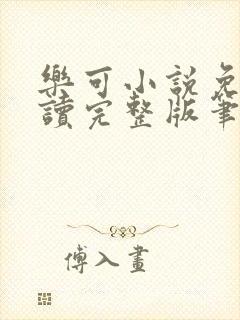 樂可小説免
讀完整版筆
傅入畫